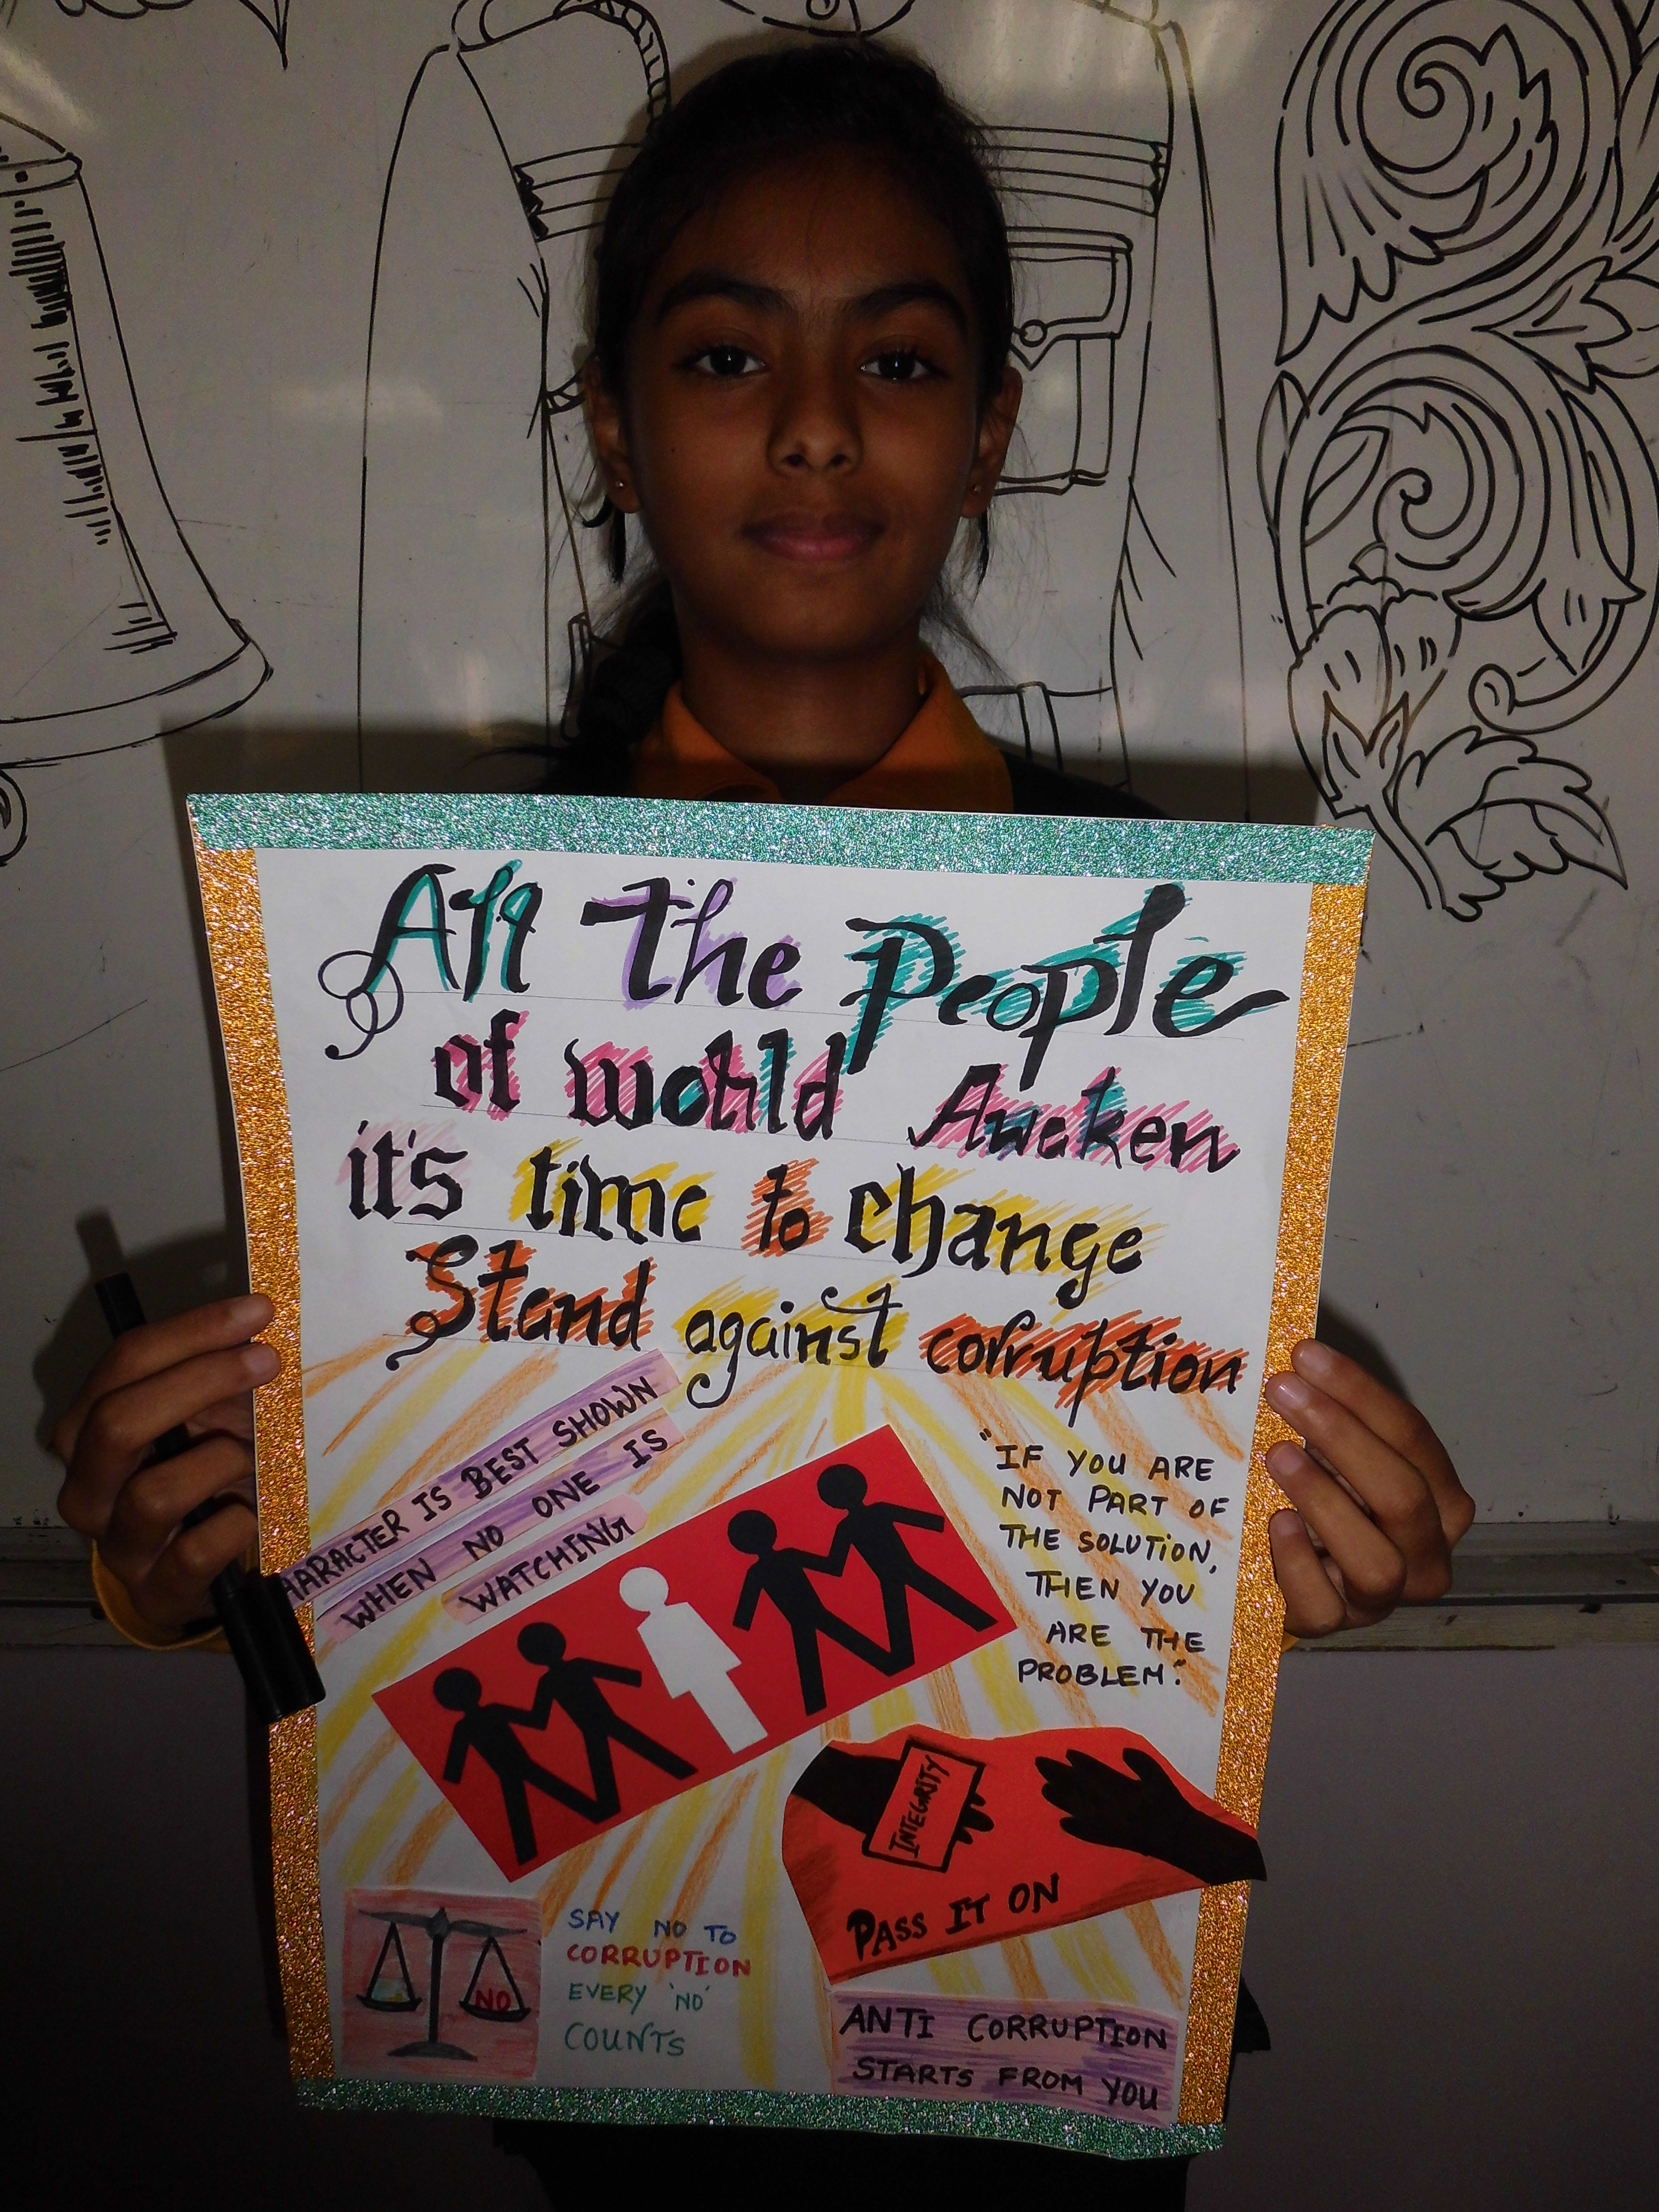 All the People
of world Awaken
it's time to change
Stand against corruption
HARACTER IS BEST SHOWN
WHEN NO ONE IS
WATCHING
"IF YOU ARE
NOT PART OF
THE SOLUTION,
THEN YOU
ARE THE
PROBLEM."
INTEGRITY
PASS IT ON
NO
SAY NO TO
CORRUPTION
EVERY 'NO'
COUNTS
ANTI CORRUPTION
STARTS FROM YOU